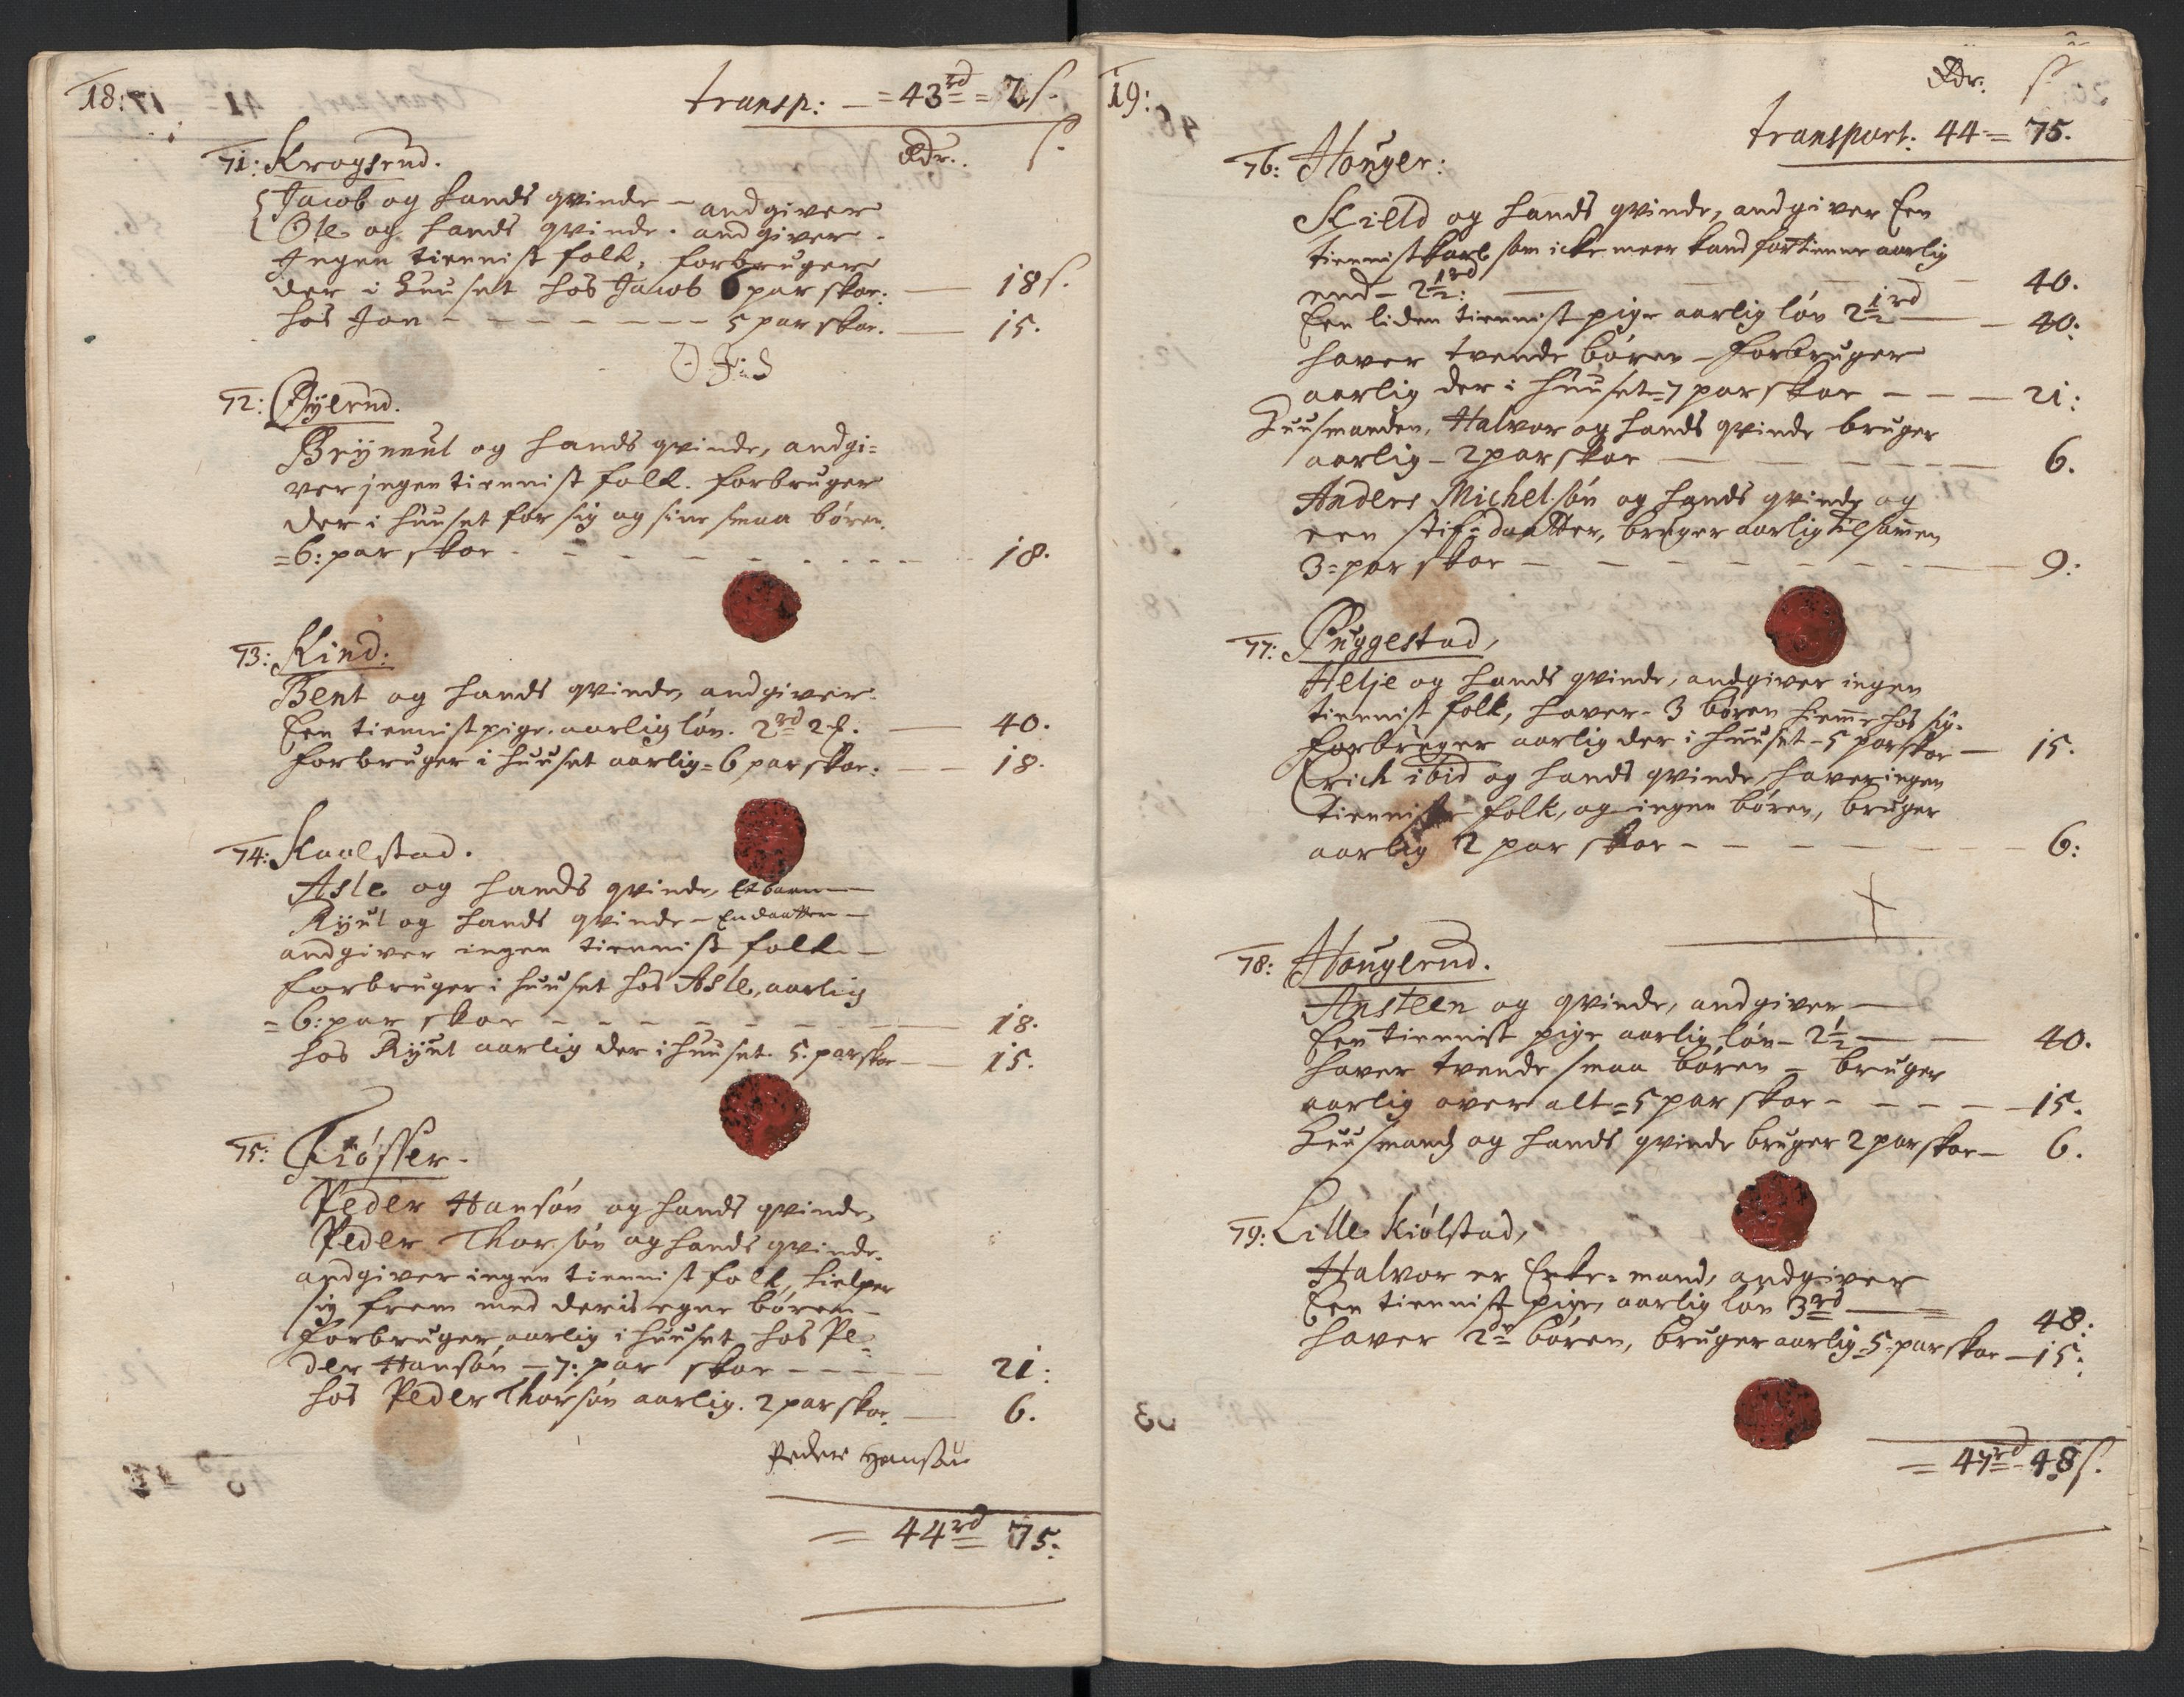 18:
transp: — = 43 rd = 7 s.
Rdr. s.
71: Krogsrud.
Jacob og hands qvinde — andgiver
Ole og hands qvinde. andgiver -
Ingen tiennist folk, forbruger
der i Huuset hos Jacob 6 par skoe: — 18 s.
hos Jon - - - - - - - 5 par skoe. — 15.
72: Byerud.
Bryniul og hands qvinde, andgi=
ver jngen tiennist folk. forbruger
der i huuset for sig og sine smaa børen
= 6: par skoe - - - - - - - - 18.
73: Kind:
Bent og hands qvinde, andgiver
Een tiennist pige. aarlig løn. 2 rd 2 — 40.
forbruger i huuset aarlig = 6 par skoe: — 18.
74: Kaalstad.
Asle og hands qvinde, Et barn —
Kyul og hands qvinde — En daatter —
andgiver ingen tiennist folk —
forbruger i huuset hos Asle, aarlig
= 6: par skoe - - - - - - — 18.
hos Kyul aarlig der i huuset. 5. par skoe — 15.
75: Tiøsser.
Peder Hansøn og hands qvinde,
Peder Thorsøn og hands qvinde.
andgiver ingen tiennist folk, hielper
sig frem med deris egne børen —
forbruger aarlig i huuset hos Pe=
der Hansøn — 7: par skoe - - - 21:
hos Peder Thorsøn aarlig. 2 par skoe. — 6.
Peder Hansøn
= 44 rd 75:
19:
Rdr. s
transport: 44 = 75.
76: Houger:
Kield og hands qvinde, andgiver Een
tiennistkarl som icke meer kand fortienne aarlig
end — 2 1/2 rd: — 40.
Een liden tiennist pige aarlig løn 2 1/2 rd — 40:
haver tvende børen — forbruger
aarlig der i huuset = 7 par skoe - - — 21:
Huusmanden, Halvor og hands qvinde bruger
aarlig — 2 par skoe — - - - — 6.
Anders Michelsøn og hands qvinde og
een stif = daatter, bruger aarlig tilsamen
3 = par skoe - - - - - - — 9:
77: Puggestad,
Helje og hands qvinde, andgiver ingen
tiennist folk, haver — 3 børen hieme hos sig.
forbruger aarlig der i huuset — 5 par skoe — 15.
Erich ibid og hands qvinde, haver ingen
tienniste folk, og ingen børen, bruger
aarlig 2 par skoe - - - - - - 6:
78: Houglrud.
Ansteen og qvinde, andgiver —
Een tiennist pige aarlig løn — 2 1/2 — 40.
haver tvende smaa børen = bruger
aarlig over alt = 5 par skoe - - - - — 15.
Huusmand og hands qvinde bruger 2 par skoe — 6.
79: Lille Kiølstad,
Halvor er Enke = mand, andgiver
Een tiennist pige, aarlig løn 3 rd — 48:
haver 2 de børen, bruger aarlig = 5 = par skoe — 15:
= 47 rd 48 s.